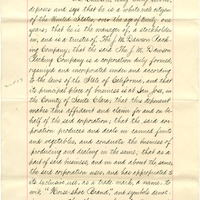 deposes and says that he is a white male citizen
of the United States, over the age of twenty one
years; that he is the manager, of a stockholder
in, and is a trustee of The J. M. Dawson Pack-
ing Company; that the said The J. M. Dawson
Packing Company is a corporation duly formed,
organized and incorporated under and according
to the laws of the State of California, and that
its principal place of business is at San Jose, in
the County of Santa Clara; that this deponent
makes this affidavit and claim for and on be-
half of the said corporation; that the said cor-
poration produces and deals in canned fruits
and vegetables, and conducts the business of
producing and dealing in the same; that as a
part of said business, and in and about the same,
the said corporation uses, and has appropriated to
its exclusive use, as a trade mark, a name, to
wit, "Horse-shoe Brand," and symbols devic-